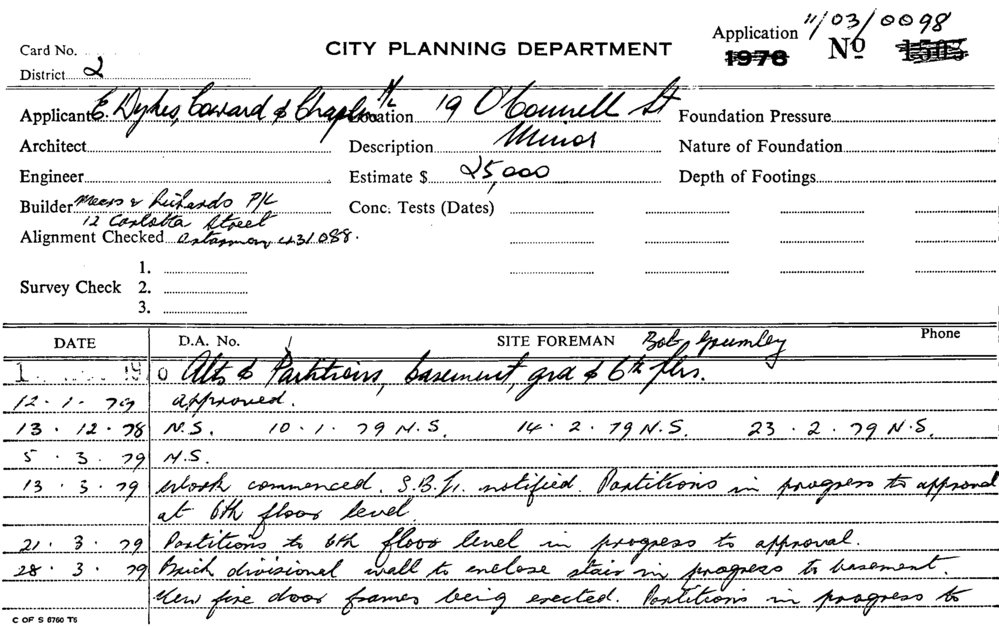 Application 11/03/0098
Card No. CITY PLANNING DEPARTMENT 1978 No 1503
District 2
Applicant E. Dykes, Coward & Chaplin P/L Location 19 O'Connell St Foundation Pressure
Architect Description Minor Nature of Foundation
Engineer Estimate $ 25,000 Depth of Footings
Builder Mears & Richards P/L Conc. Tests (Dates)
12 Carlotta Street
Alignment Checked Artarmon 431088.
1.
Survey Check 2.
3.
DATE D.A. No. SITE FOREMAN Bob Phone
1 Alts & Partitions, basement, grd & 6th flrs.
12.1.79 approved.
13.12.78 N.S. 10.1.79 N.S. 14.2.79 N.S. 23.2.79 N.S.
5.3.79 N.S.
13.3.79 Work commenced. notified. Partitions in progress to approval
at 6th floor level
21.3.79 Partitions to 6th floor level in progress to approval.
28.3.79 Brick divisional wall to enclose stair in progress to basement.
New fire door frames being erected. Partitions in progress to
C OF S 6760 T6